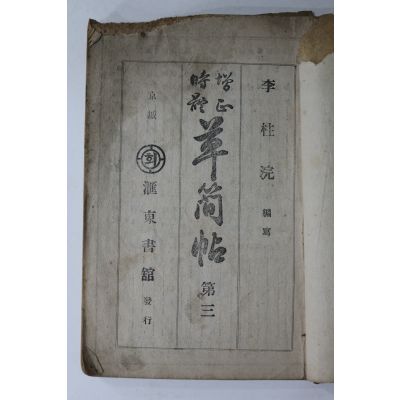 李柱浣 編寫
增正
時體
草簡帖 第三
京城 회 滙東書館 發行